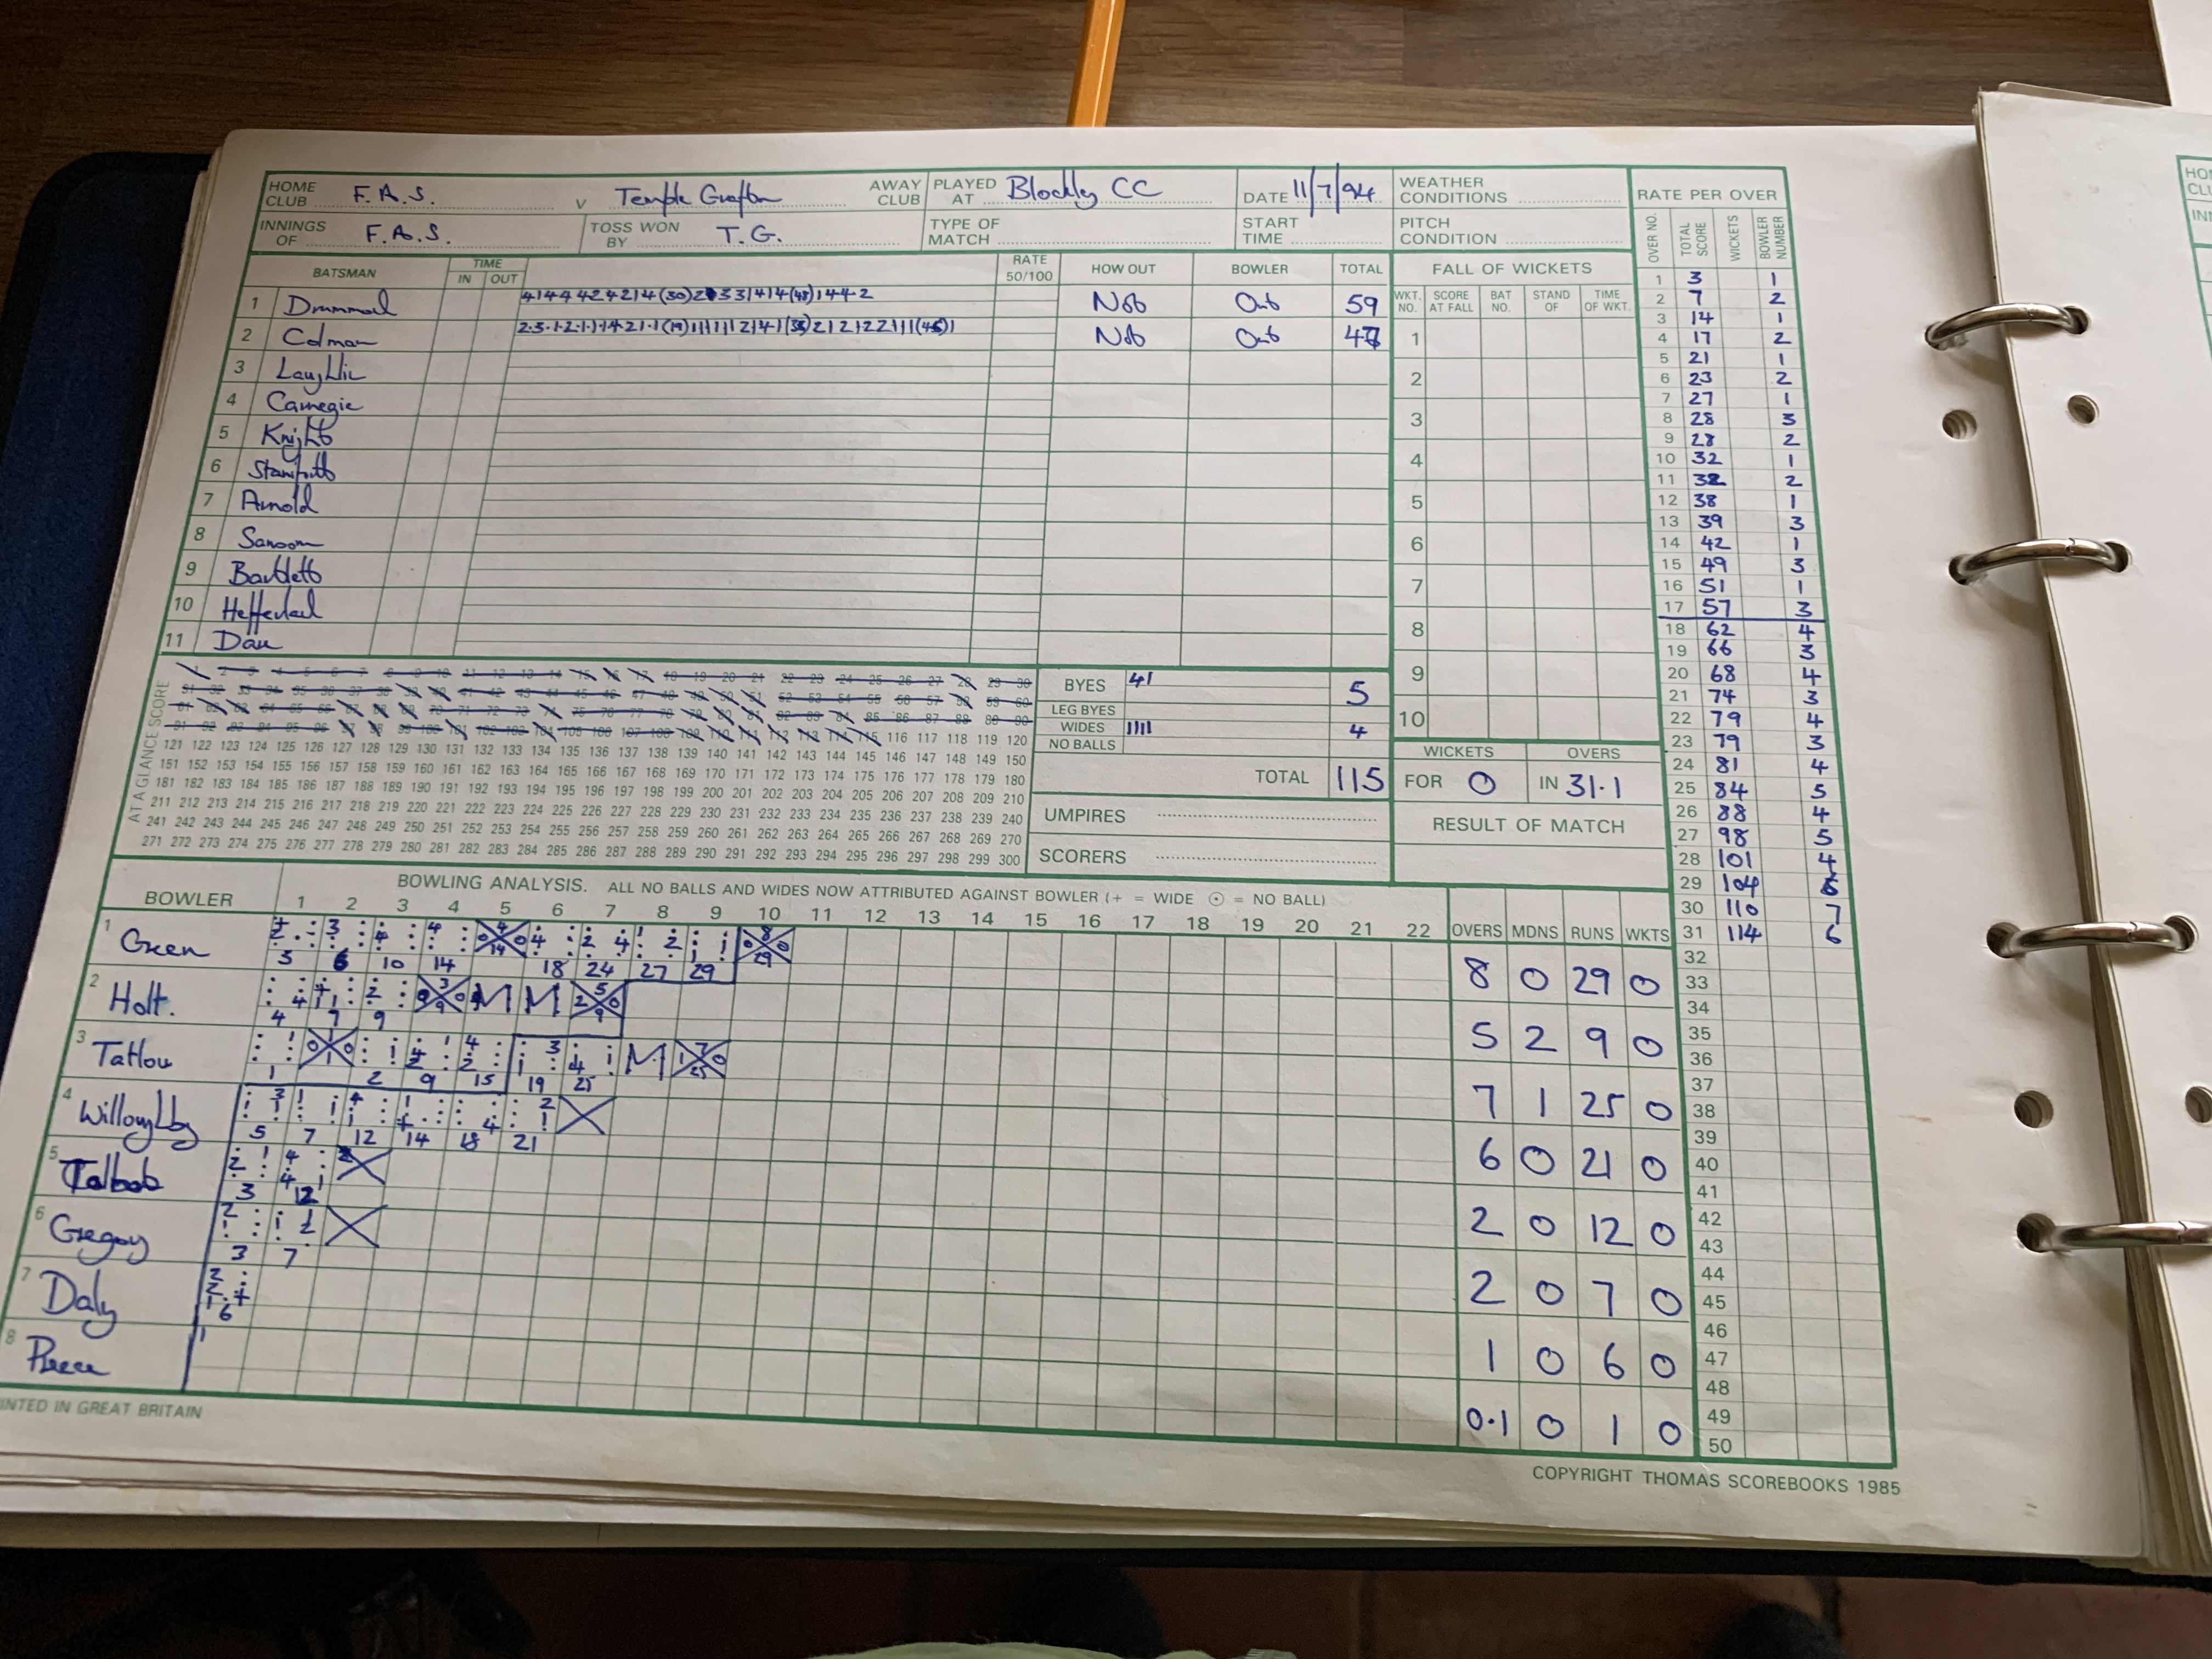 HOME CLUB F.A.S. v Temple Grafton AWAY CLUB PLAYED AT Blockly CC DATE 11/7/94 WEATHER CONDITIONS RATE PER OVER
INNINGS OF F.A.S. TOSS WON BY T.G. TYPE OF MATCH START TIME PITCH CONDITION
BATSMAN TIME IN OUT RATE 50/100 HOW OUT BOWLER TOTAL
1 Drummond Not Out 59
2 Colman Not Out 47
3 Laughlin
4 Carnegie
5 Knight
6
7 Arnold
8 Sansom
9 Bartlett
10
11
FALL OF WICKETS
WKT. NO. SCORE AT FALL BAT NO. STAND OF TIME OF WKT.
1
2
3
4
5
6
7
8
9
10
OVER NO. TOTAL SCORE WICKETS BOWLER NUMBER
1 3 1
2 7 2
3 14 1
4 17 2
5 21 1
6 23 2
7 27 1
8 28 3
9 28 2
10 32 1
11 32 2
12 38 1
13 39 3
14 42 1
15 49 3
16 51 1
17 57 3
18 62 4
19 66 3
20 68 4
21 74 3
22 79 4
23 79 3
24 81 4
25 84 5
26 88 4
27 98 5
28 101 4
29 104 6
30 110 7
31 114 6
32
33
34
35
36
37
38
39
40
41
42
43
44
45
46
47
48
49
50
AT A GLANCE SCORE
1 2 3 4 5 6 7 8 9 10 11 12 13 14 15 16 17 18 19 20 21 22 23 24 25 26 27 28 29 30
31 32 33 34 35 36 37 38 39 40 41 42 43 44 45 46 47 48 49 50 51 52 53 54 55 56 57 58 59 60
61 62 63 64 65 66 67 68 69 70 71 72 73 74 75 76 77 78 79 80 81 82 83 84 85 86 87 88 89 90
91 92 93 94 95 96 97 98 99 100 101 102 103 104 105 106 107 108 109 110 111 112 113 114 115 116 117 118 119 120
121 122 123 124 125 126 127 128 129 130 131 132 133 134 135 136 137 138 139 140 141 142 143 144 145 146 147 148 149 150
151 152 153 154 155 156 157 158 159 160 161 162 163 164 165 166 167 168 169 170 171 172 173 174 175 176 177 178 179 180
181 182 183 184 185 186 187 188 189 190 191 192 193 194 195 196 197 198 199 200 201 202 203 204 205 206 207 208 209 210
211 212 213 214 215 216 217 218 219 220 221 222 223 224 225 226 227 228 229 230 231 232 233 234 235 236 237 238 239 240
241 242 243 244 245 246 247 248 249 250 251 252 253 254 255 256 257 258 259 260 261 262 263 264 265 266 267 268 269 270
271 272 273 274 275 276 277 278 279 280 281 282 283 284 285 286 287 288 289 290 291 292 293 294 295 296 297 298 299 300
BYES 41 5
LEG BYES
WIDES 1111 4
NO BALLS
TOTAL 115
UMPIRES
SCORERS
WICKETS OVERS
FOR 0 IN 31.1
RESULT OF MATCH
BOWLING ANALYSIS. ALL NO BALLS AND WIDES NOW ATTRIBUTED AGAINST BOWLER (+ = WIDE ⊙ = NO BALL)
BOWLER 1 2 3 4 5 6 7 8 9 10 11 12 13 14 15 16 17 18 19 20 21 22 OVERS MDNS RUNS WKTS
1 Green 3 6 10 14 18 24 27 29 8 0 29 0
2 Holt. 4 7 9 M M 5 2 9 0
3 Tatlow 1 2 9 15 19 25 M 7 1 25 0
4 Willoughby 5 7 12 14 18 21 6 0 21 0
5 Talbot 3 12 2 0 12 0
6 Gregory 3 7 2 0 7 0
7 Daly 6 1 0 6 0
8 1 0.1 0 1 0
INTED IN GREAT BRITAIN
COPYRIGHT THOMAS SCOREBOOKS 1985